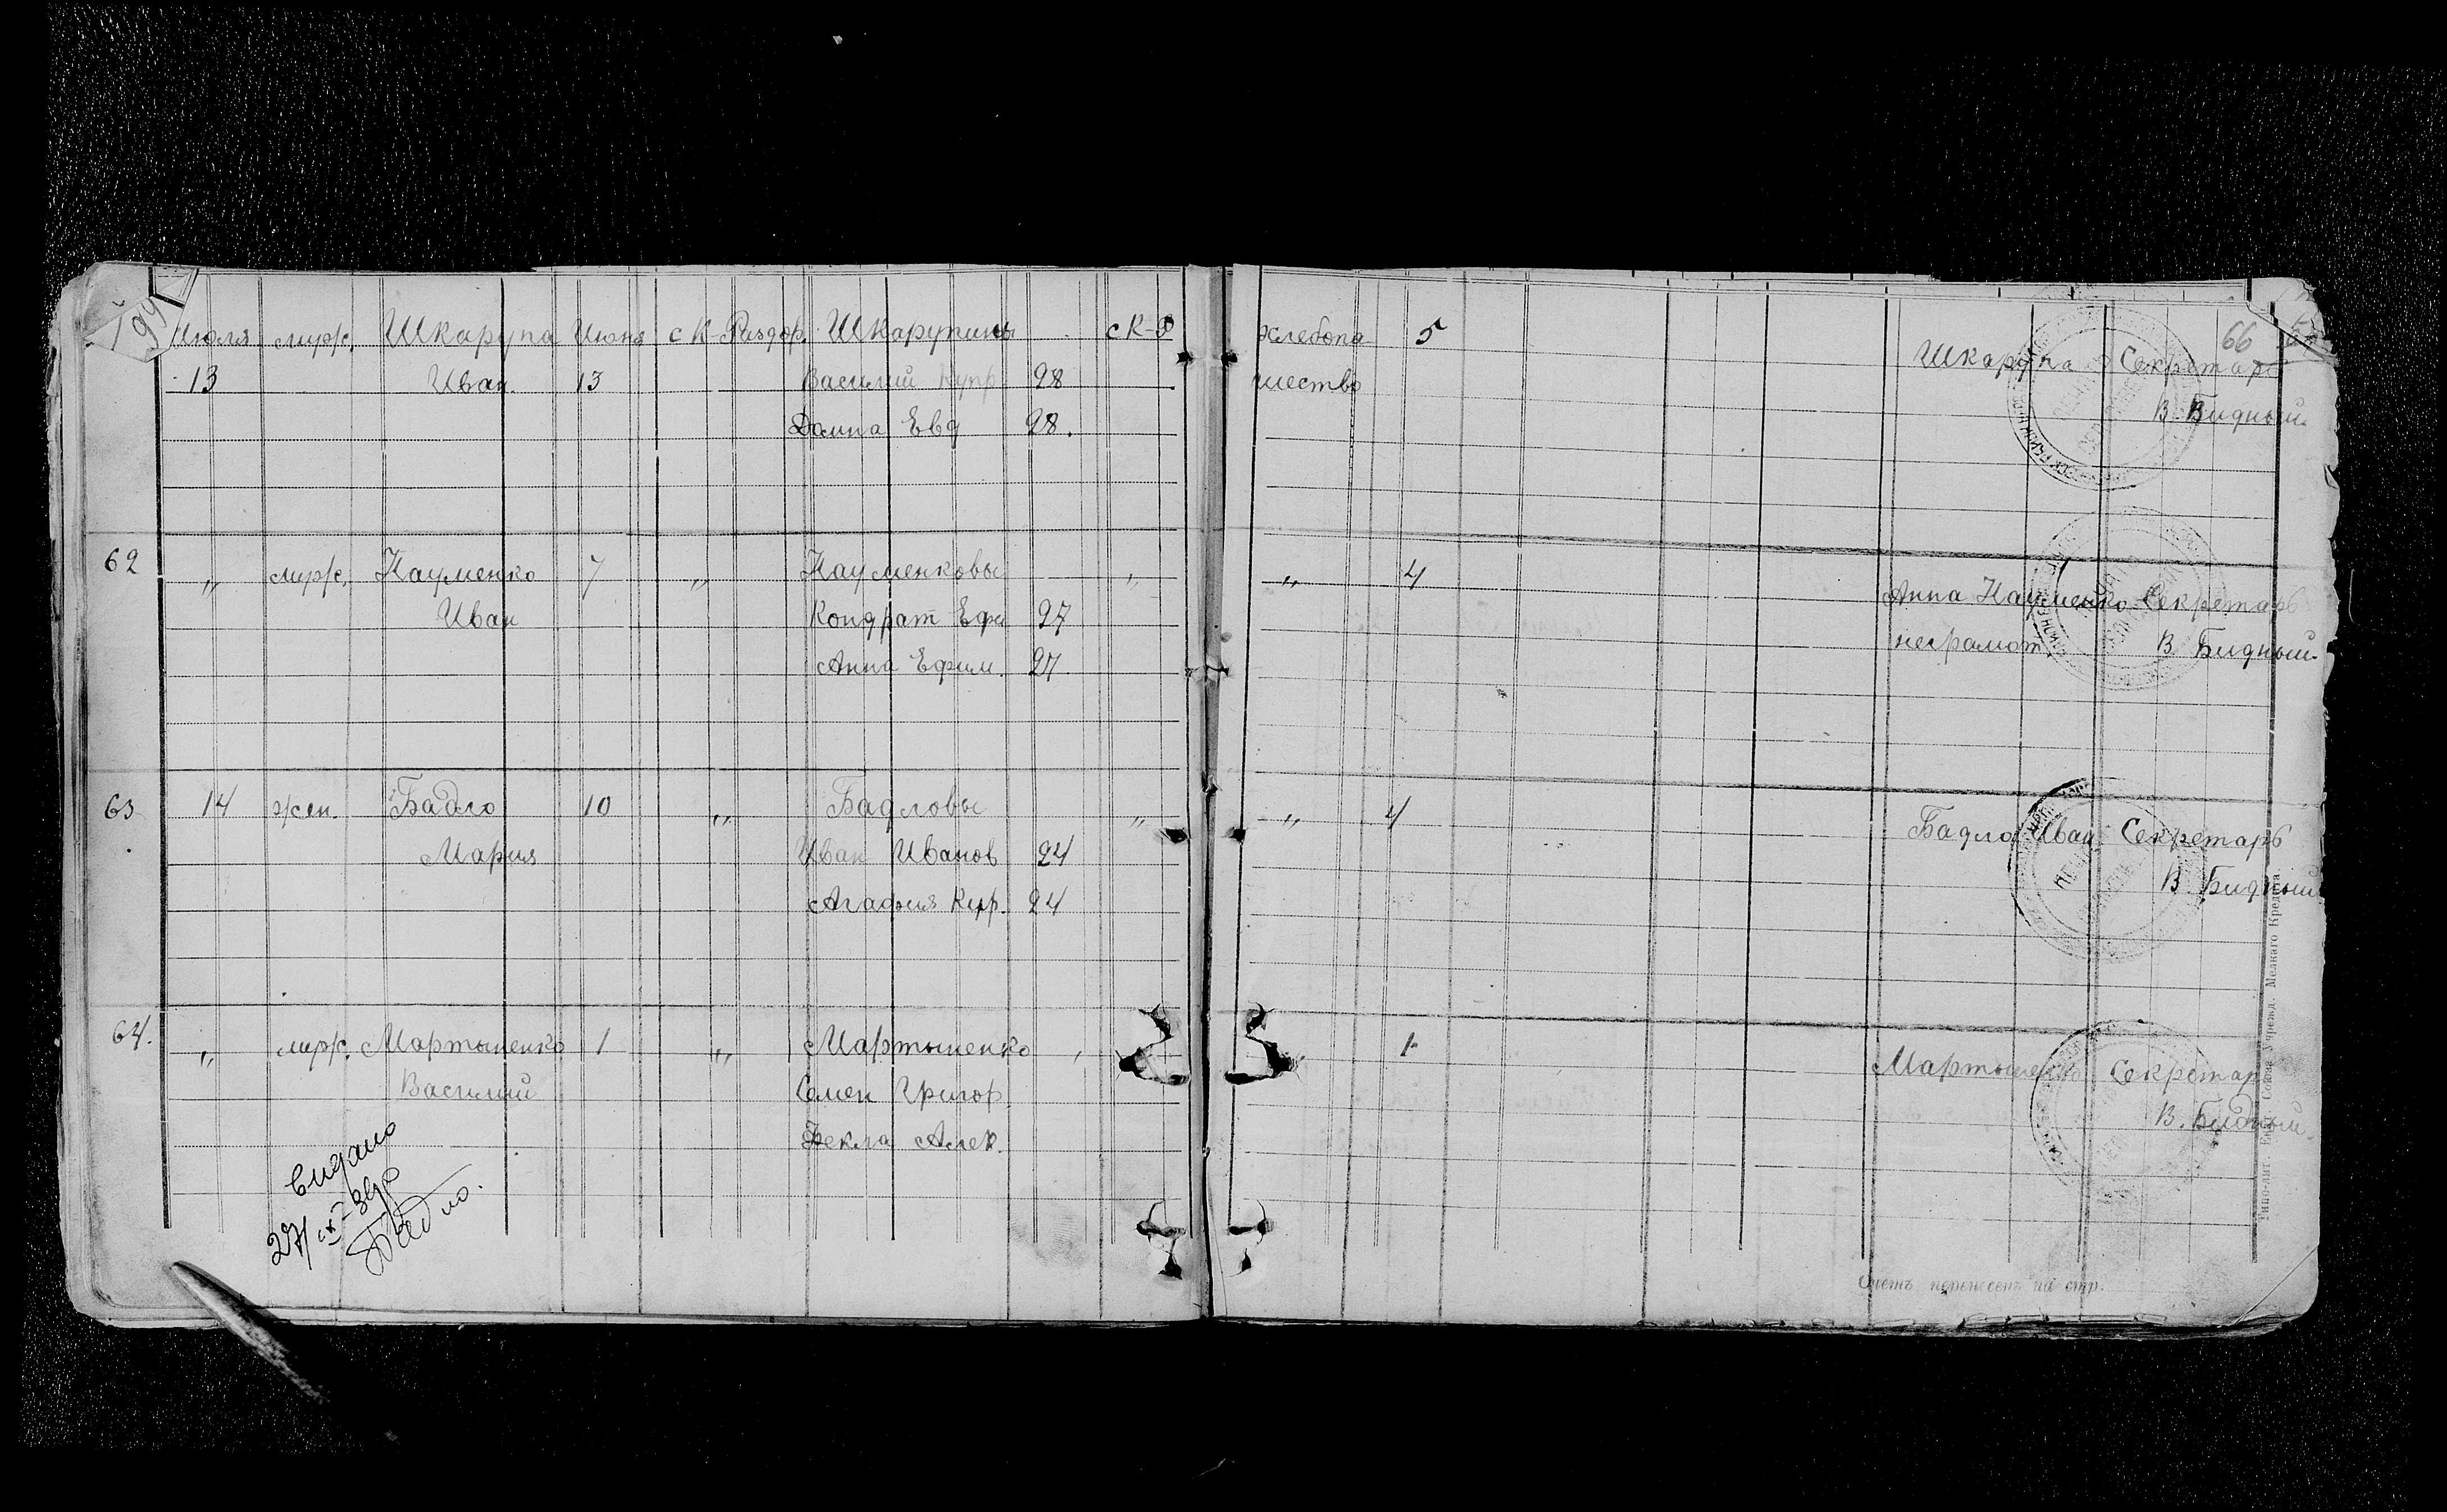 Июля муж. Шкарупа Июня с К-Раздор. Шкарупины с К-Р хлебопа 5 Шкарупа Секретарь 66
13 Иван 13 Василий Купр 28 шество В. Бидный
Домна Евд 28.
62 " муж. Науменко 7 " Науменковы " " 4 Анна Науменко Секретарь
Иван Кондрат Ефи 27 неграмот. В. Бидный
Анна Ефим. 27
63 14 жен. Бадло 10 " Бадловы " " 4 Бадло Иван Секретарь
Мария Иван Иванов 24 В. Бидный
Агафия Кир. 24
64. " муж. Мартыненко 1 " Мартыненко 1 Мартыненко Секретарь
Василий Семен Григор В. Бидный
Фекла Алек.
видано
27/IX-
Бадло.
Счетъ перенесенъ на стр.
Типо-лит. Екат. Союза Учрежд. Мелкаго Кредита